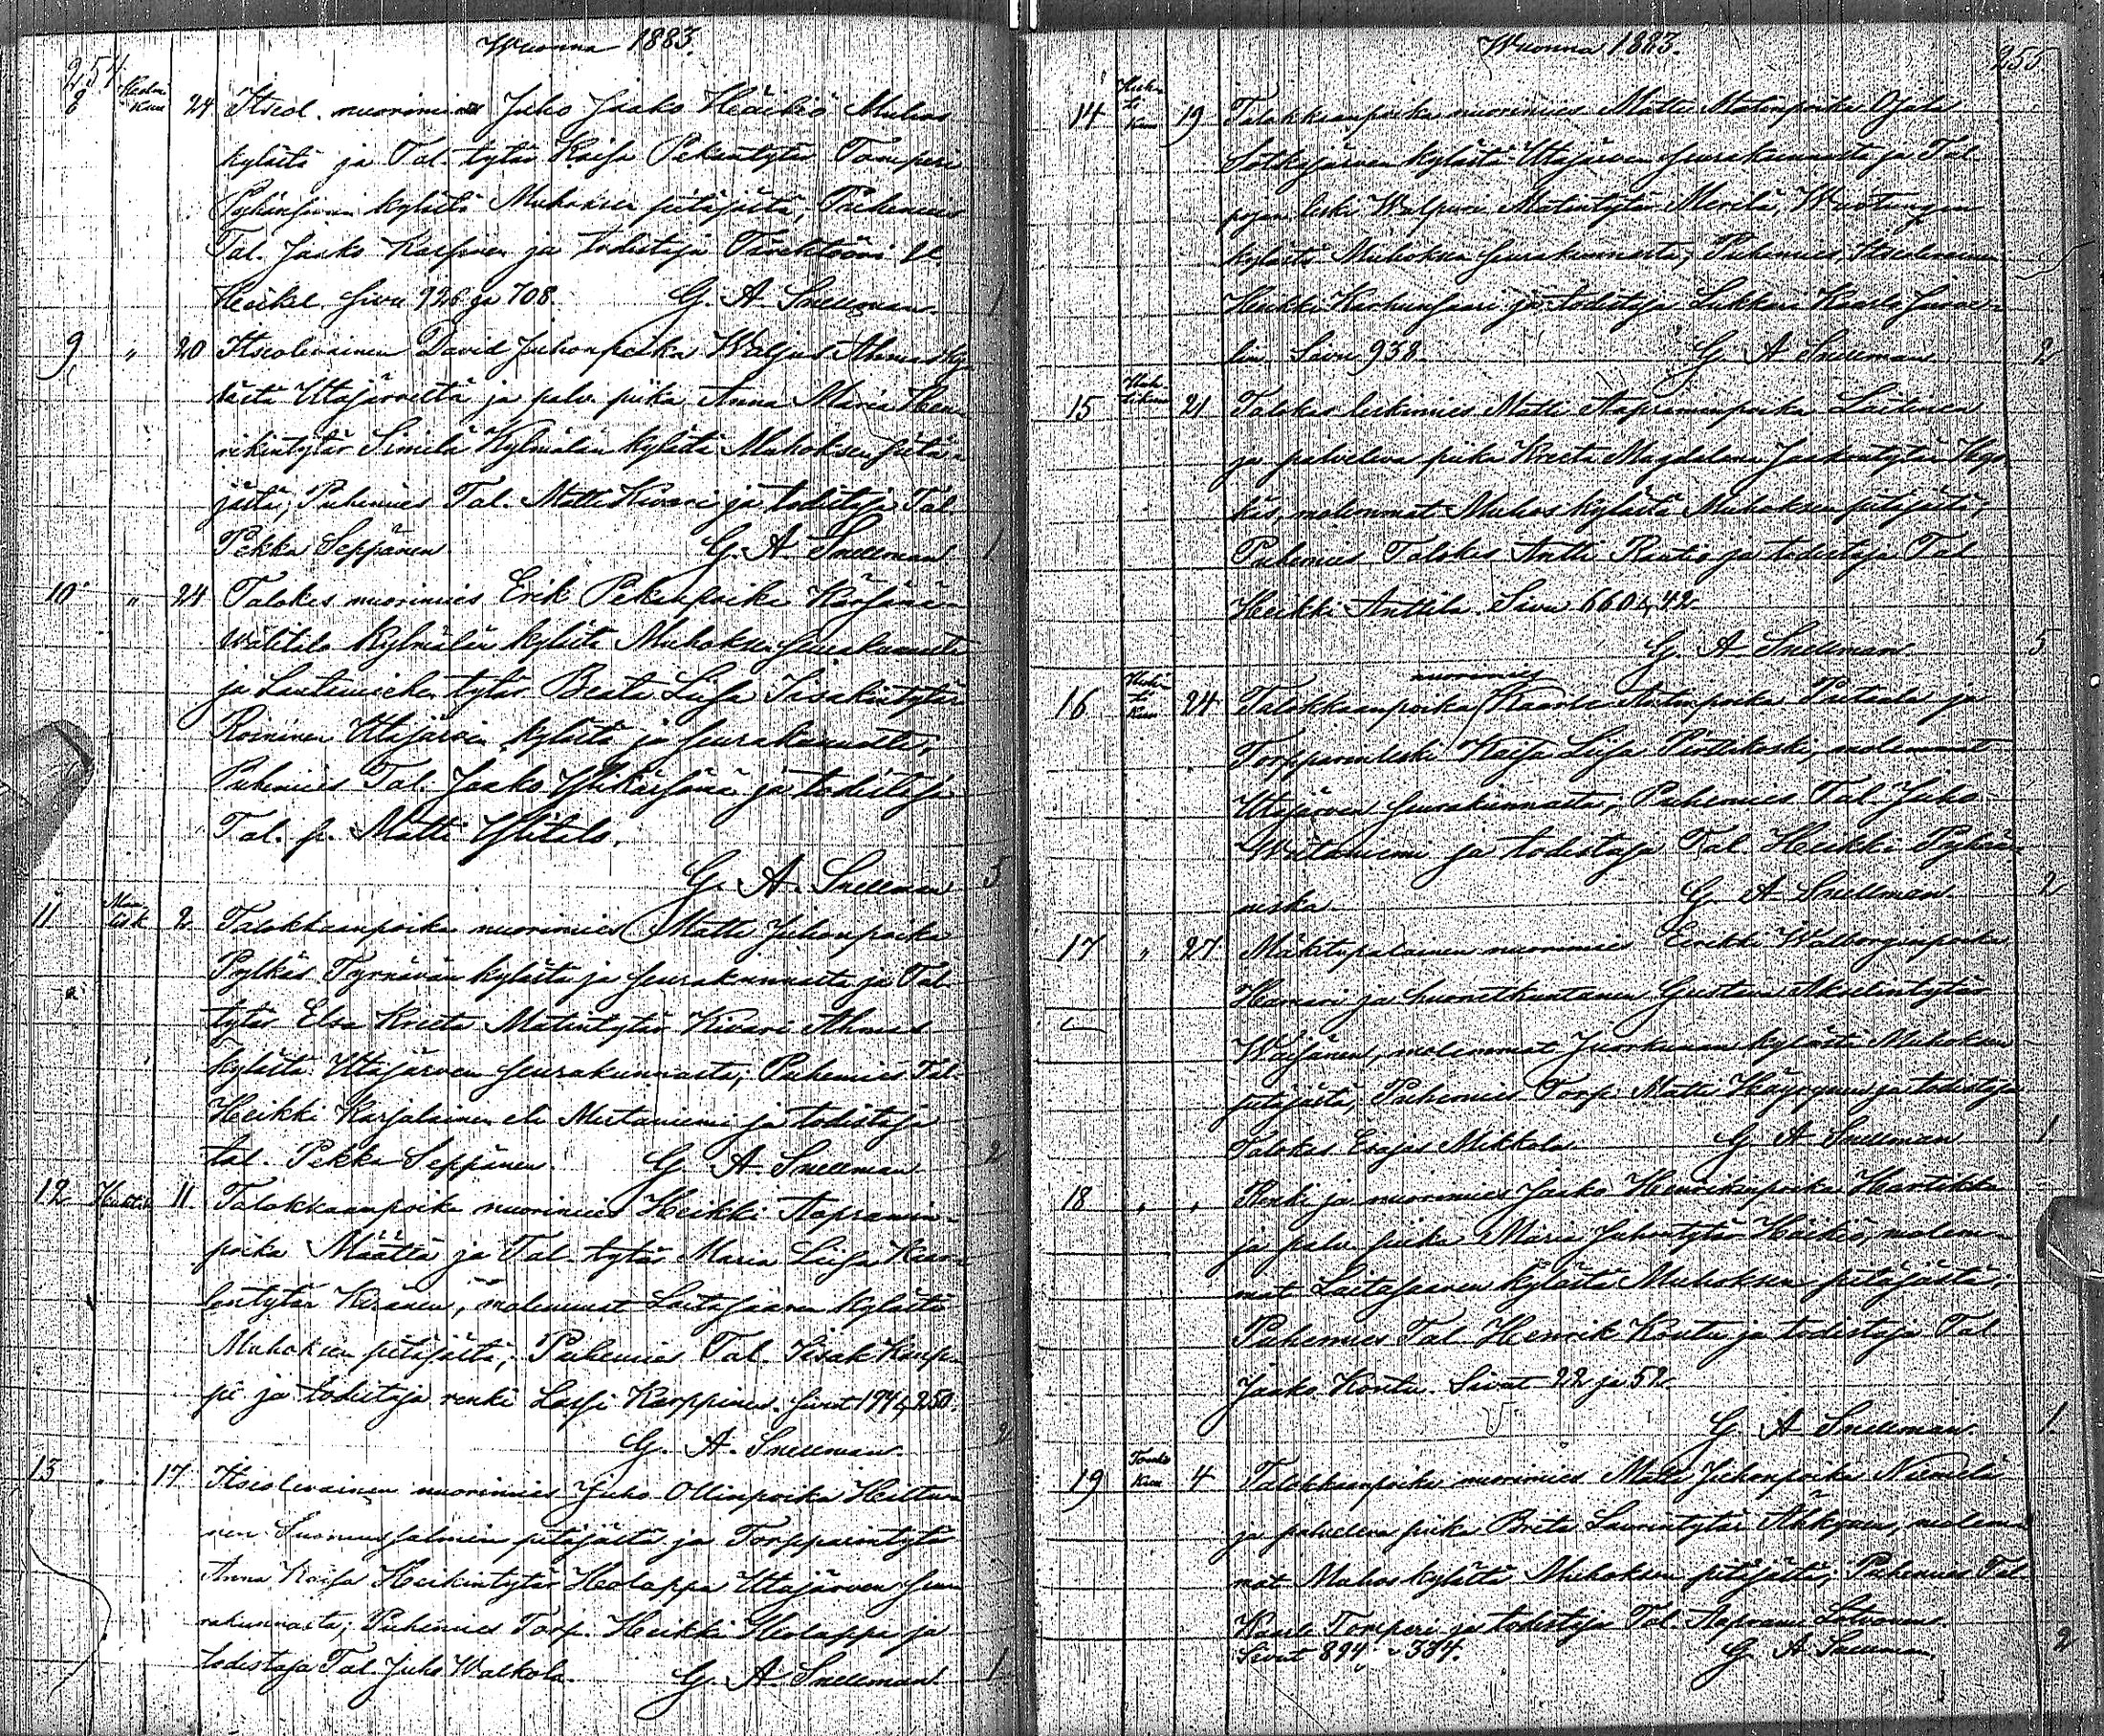 Wuonna 1883.
254
8 Helmi Kuu 24 Itseol. nuorimies Juho Jaako Häikiö Muhos
kylästä ja Tal. tytär Kaisa Pekantytär Tomperi
kylästä Muhoksen pitäjästä, Puhemies
Tal. Jaako Karhonen ja todistaja
sivu 926 ja 708. G. A. Snellman. 1
9 " 20 Itseolevainen David Juhonpoika Waljus Ahmas ky-
lästä Utajärveltä ja palv. piika Anna Maria Hen-
rikintytär Similä Kylmälän kylästä Muhoksen pitä-
jästä, Puhemies Tal. Matti Kivari ja todistaja Tal.
Pekka Seppänen G. A. Snellman 1
10 " 24 Talokas nuorimies Erik Pekanpoika Kärsänä-
wälitalo Kylmälän kylästä Muhoksen seurakunnasta
ja tytär Beata Liisa Iisakintytär
Roininen Utajärven kylästä ja seurakunnasta,
Puhemies Tal. Jaako Ylikärsänä ja todistaja
Tal. p. Matti Ylitalo.
G. A. Snellman 5
11 2 Talokkaanpoika nuorimies Matti Juhonpoika
Pylkäs Tyrnävän kylästä ja seurakunnasta ja Tal.
tytär Elsa Kreeta Matintytär Kivari Ahmas
kylästä Utajärven seurakunnasta; Puhemies Tal.
Heikki Karjalainen eli Mustaniemi ja todistaja
tal. Pekka Seppänen. G. A. Snellman 2
12 Huhtik 11. Talokkaanpoika nuorimies Heikki Aapramin-
poika Määttä ja Tal. tytär Maria Liisa Kaar-
lentytär Keränen, molemmat Laitasaaren kylästä
Muhoksen pitäjästä; Puhemies Tal. Iisak Kaup-
pi ja todistaja renki Lassi Karppinen. Sivut 194 & 250.
G. A. Snellman. 2
13 " 17 Itseolevainen nuorimies Juho Ollinpoika Heiltu-
nen Suomussalmen pitäjästä ja Torpparintytär
Anna Kaisa Heikintytär Holappa Utajärven seu-
rakunnasta; Puhemies Torp. Heikki Holappa ja
todistaja Tal. Juho Walkola. G. A. Snellman. 1
Wuonna 1883. 255
14 Huh-ti Kuu 19 Talokkaanpoika nuorimies Matti Matinpoika Ojala
Sotkajärven kylästä Utajärven seurakunnasta ja Tal.
pojan leski Walpuri Matintytär Merilä,
kylästä Muhoksen seurakunnasta; Puhemies, Itseolevainen
Heikki Karhunsaari ja todistaja Lukkari Kaarlo
lin. Sivu 938. G. A. Snellman. 2
15 Huh-tikuu 21 Talokas leskimies Matti Aapraminpoika Laitinen
ja palveleva piika Kreeta Magdalena Jaakontytär
käs, molemmat Muhos kylästä Muhoksen pitäjästä,
Puhemies Talokas Antti Raatio ja todistaja Tal
Heikki Anttila. Sivu 660 & 42.
G. A. Snellman. 5
16 Huh-ti Kuu 24 Talokkaanpoika nuorimies Kaarle Antinpoika Pietaala ja
Torpparinleski Kaisa Liisa Pirttikoski, molemmat
Utajärven seurakunnasta; Puhemies Tal. Juho
ja todistaja Tal. Heikki Pyhän-
niska. G. A. Snellman. 2
17 " 27 Mäkitupalainen nuorimies Eerikki Walborginpoika
Hannari ja Gustava Akselintytär
Wäisänen, molemmat Juorkunan kylästä Muhoksen
pitäjästä, Puhemies Torp. Matti Häyrynen ja todistaja
Talokas Esajas Mikkola. G. A. Snellman 1
18 " " Renki ja nuorimies Jaako Henrikinpoika Hartikka
ja palv. piika Maria Juhontytär Häikiö, molem-
mat Laitasaaren kylästä Muhoksen pitäjästä;
Puhemies Tal. Henrik Kontu ja todistaja Tal
Jaako Kontu. Sivut 22 ja 52.
G. A. Snellman. 1.
19 Touko Kuu 4 Talokkaanpoika nuorimies Matti Juhonpoika Niemelä
ja palveleva piika Brita LaurintytärÄhkynen, molem-
mat Muhos kylästä Muhoksen pitäjästä; Puhemies Tal.
Kaarle Tomperi ja todistaja Tal. Aaprami Lotvonen.
Sivut 894 " 334. G. A. Snellman. 2